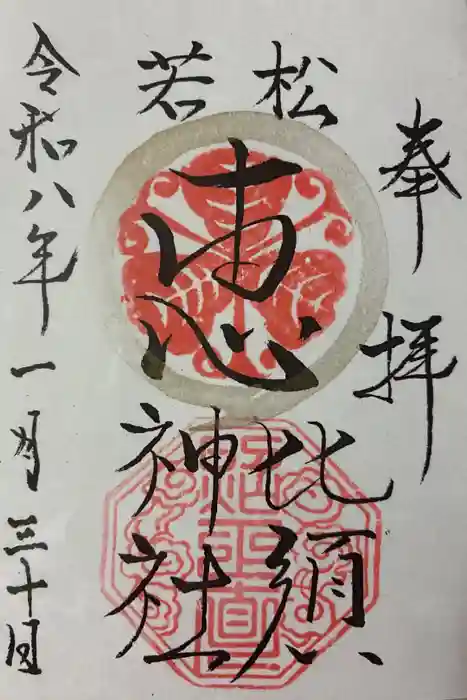 奉拝
松若
恵比須
神社
令和八年一月三十日